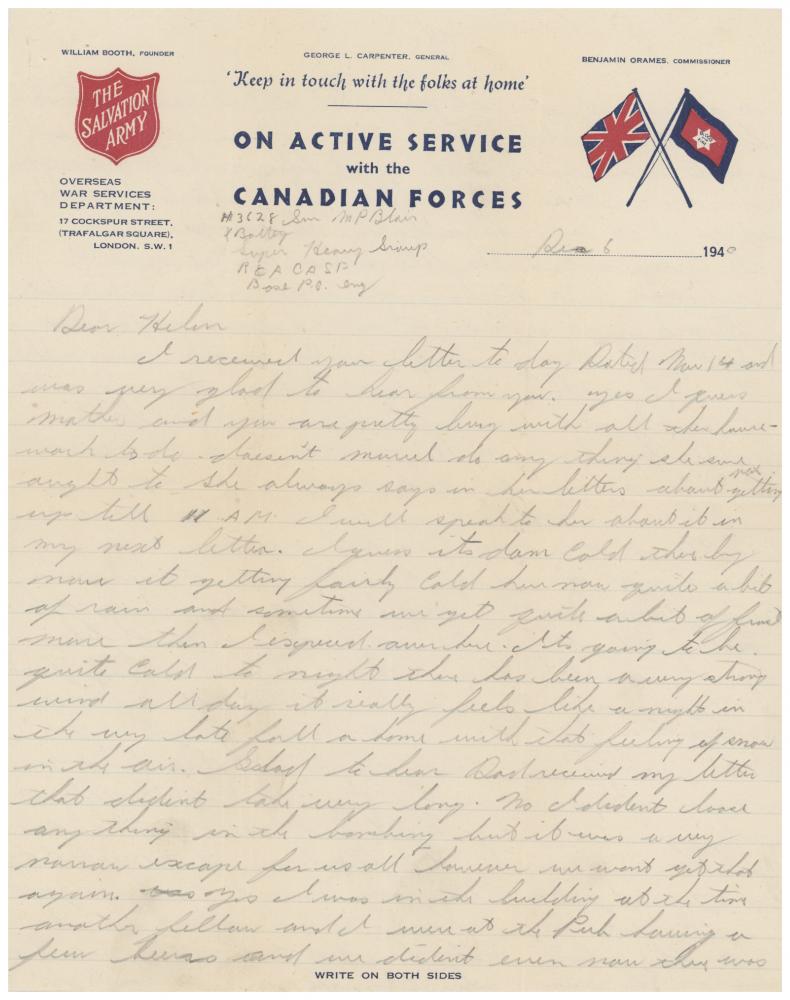 WILLIAM BOOTH, FOUNDER
GEORGE L. CARPENTER, GENERAL
BENJAMIN ORAMES, COMMISSIONER
THE
SALVATION
ARMY
'Keep in touch with the folks at home'
ON ACTIVE SERVICE
with the
CANADIAN FORCES
OVERSEAS
WAR SERVICES
DEPARTMENT:
17 COCKSPUR STREET,
(TRAFALGAR SQUARE),
LONDON. S.W. 1
Gnr M P Blair
Super Heavy Group
R C A C A S F
Base P.O. Eng
Dec 6 1940
Dear Helen
I received your letter to day Dated Nov 14 and
was very glad to hear from you. yes I guess
mother and you are pretty busy with all the house-
work to do. doesen't do any thing she sure
aught to She always says in her letters about not getting
up till 11 A.M. I will speak to her about it in
my next letter. I guess its dam Cold there by
now it getting fairly Cold here now quite a bit
of rain and sometime we get quite a bit of frost
more then I expected over here. Its going to be
quite Cold to night there has been a very strong
wind all day it really feels like a night in
the very late fall a home with that feeling of snow
in the air. Glad to hear Dad received my letter
that dident take very long. No I dident loose
any thing in the bombing but it was a very
narrow excape for us all however we wont get that
again. yes I was in the building at the time
another fellow and I were at the Pub having a
few beers and we dident even now there was
WRITE ON BOTH SIDES